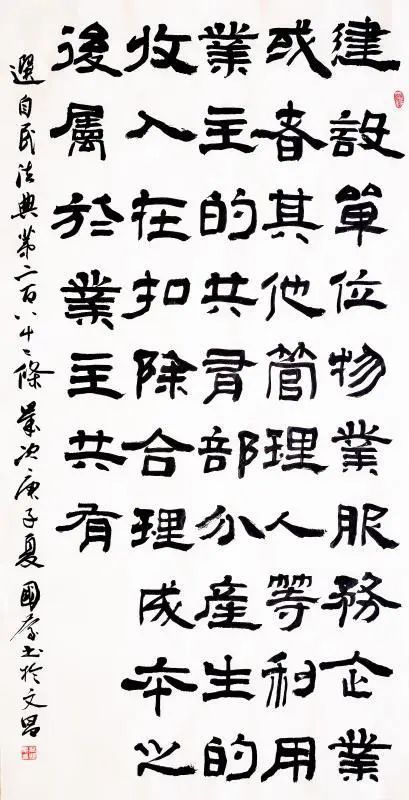 建設單位物業服務企業
或者其他管理人等利用
業主的共有部分產生的
收入在扣除合理成本之
後屬於業主共有
選自民法典第二百八十二條 歲次庚子夏 國書於文昌